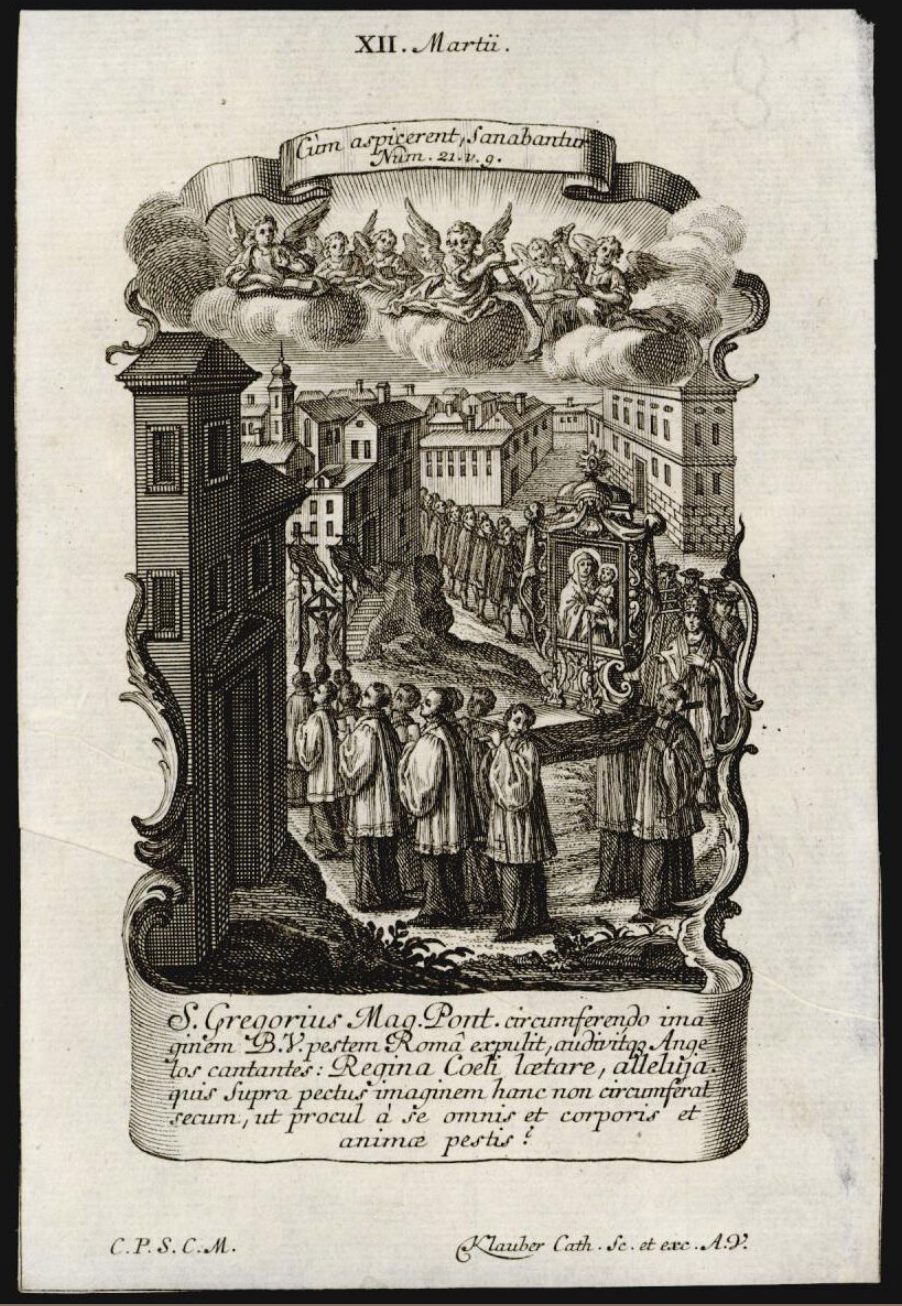 XII. Martii.
Cùm aspicerent, Sanabantur
Num. 21. v. 9.
S. Gregorius Mag. Pont. circumferendo ima
ginem B.V. pestem Româ expulit, audivitqꝫ Ange
los cantantes: Regina Coeli lætare, alleluja.
quis supra pectus imaginem hanc non circumferat
secum, ut procul à se omnis et corporis et
animæ pestis?
C.P.S.C.M.
Klauber Cath. Sc. et exc. A.V.